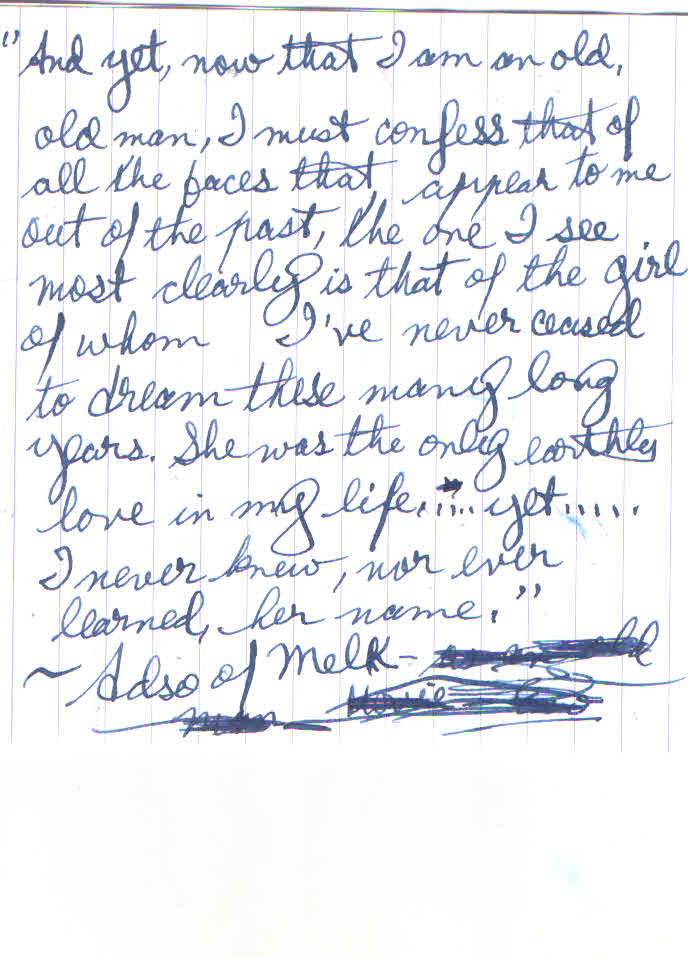 "And yet, now that I am an old,
old man, I must confess that of
all the faces that appear to me
out of the past, the one I see
most clearly is that of the girl
of whom I've never ceased
to dream these many long
years. She was the only earthly
love in my life..... yet.....
I never knew, nor ever
learned, her name."
~ Adso of Melk -